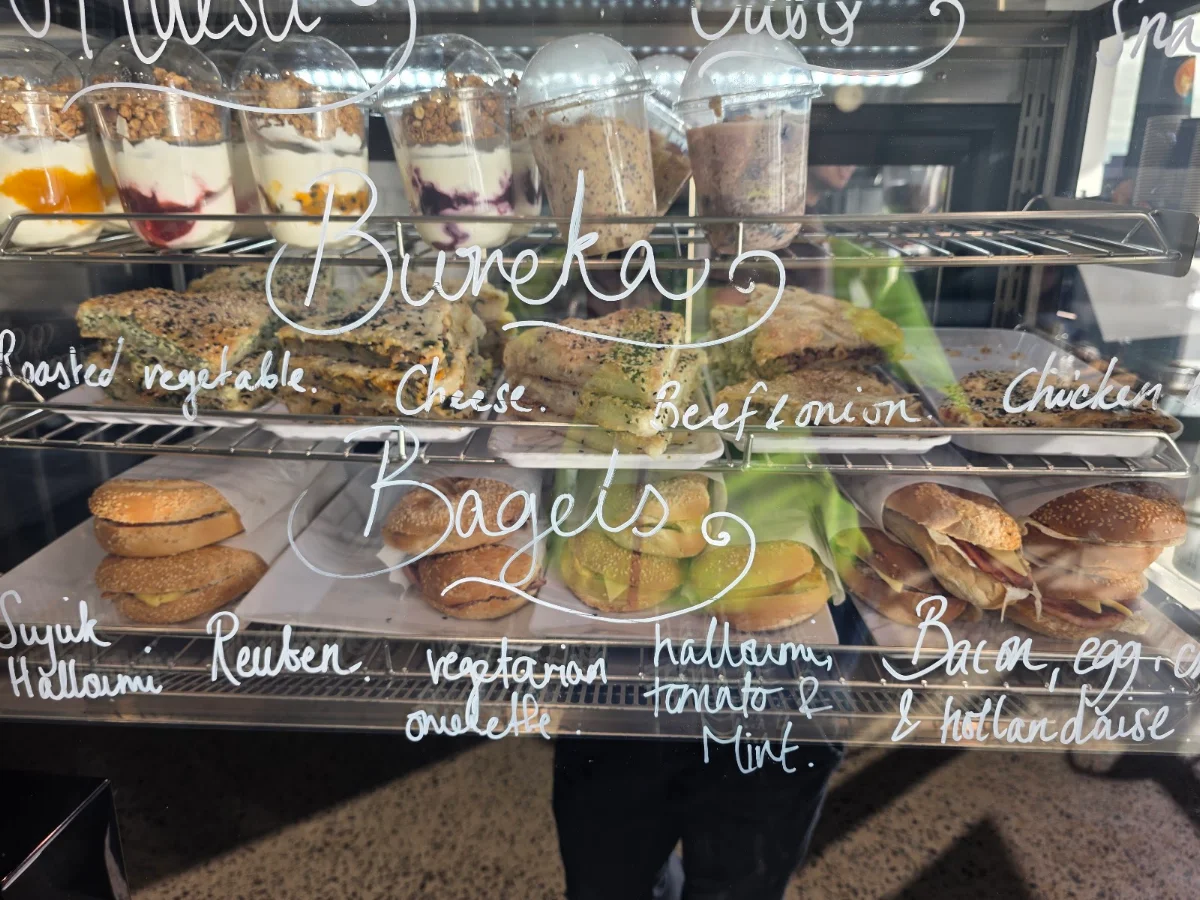 Bureka
Roasted vegetable. Cheese. Beef & onion Chicken
Bagels
Sujuk
Halloumi
Reuben.
vegetarian
omelette.
halloumi,
tomato &
Mint.
Bacon, egg,
& hollandaise